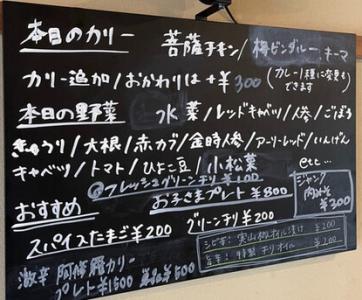 本日のカリー 菩薩チキン/梅ビンダルー、キーマ
カリー追加/おかわりは +¥300 (カレー1種に変更も
できます)
本日の野菜 水菜/レッドキャベツ/人参/ごぼう
きゅうり/大根/赤カブ/金時人参/アーリーレッド/いんげん
キャベツ/トマト/ひよこ豆/小松菜 etc...
@フレッシュグリーンチリ ¥100
おすすめ お子さまプレート ¥800
スパイスたまご ¥200 グリーンチリ ¥200
激辛 阿修羅カリー
プレート ¥1500 ¥500
ジャンク
¥300
シビ辛: 実山椒オイル漬け ¥200
旨辛: 特製チリオイル ¥200